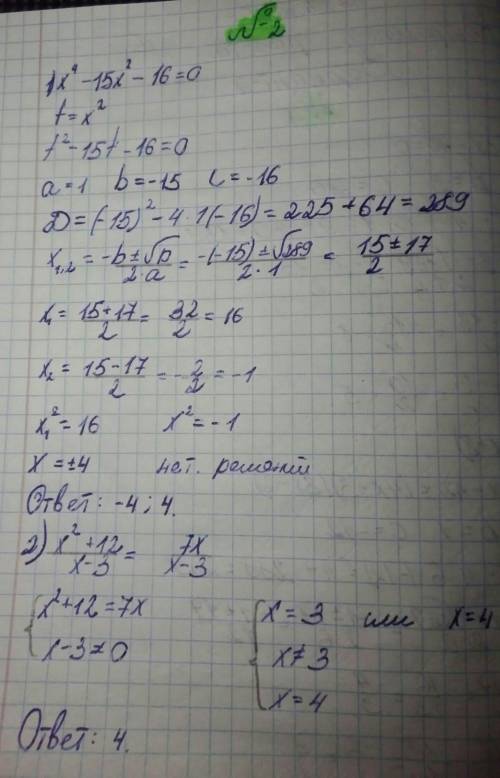 №2
1) x⁴ - 15x² - 16 = 0
t = x²
t² - 15t - 16 = 0
a = 1 b = -15 c = -16
D = (-15)² - 4·1(-16) = 225 + 64 = 289
x₁,₂ = (-b ± √D)/(2·a) = (-(-15) ± √289)/(2·1) = (15 ± 17)/2
x₁ = (15+17)/2 = 32/2 = 16
x₂ = (15-17)/2 = -2/2 = -1
x₁² = 16 x² = -1
x = ±4 нет. решений
Ответ: -4; 4.
2) (x² + 12)/(x-3) = 7x/(x-3)
{ x² + 12 = 7x { x = 3 или x = 4
x - 3 ≠ 0 x ≠ 3
x = 4
Ответ: 4.